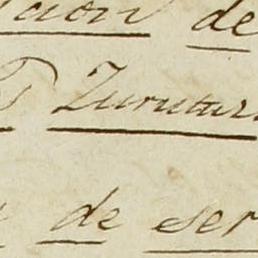 cion de
Zurutuza
de ser